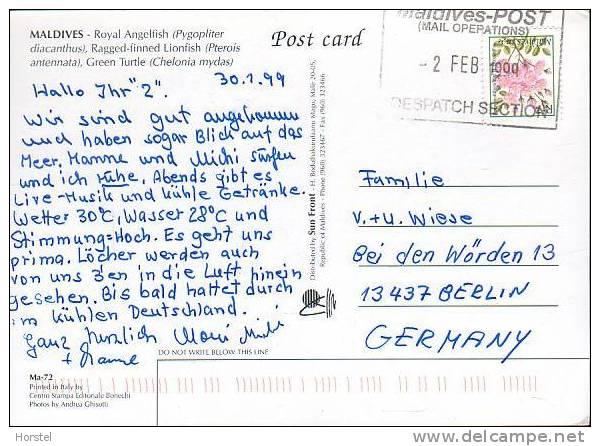 MALDIVES - Royal Angelfish (Pygopliter
diacanthus), Ragged-finned Lionfish (Pterois
antennata), Green Turtle (Chelonia mydas)
Post card
Maldives-POST
(MAIL OPERATIONS)
- 2 FEB
DESPATCH SECTION
30.1.99
Hallo Ihr "2".
Wir sind gut angekommen
und haben sogar Blick auf das
Meer. Hanne und Michi surfen
und ich ruhe. Abends gibt es
Live-Musik und kühle Getränke.
Wetter 30°C, Wasser 28°C und
Stimmung=Hoch. Es geht uns
prima. Löcher werden auch
von uns 3'en in die Luft hinein
gesehen. Bis bald haltet durch
im kühlen Deutschland.
Ganz herzlich
+ Hanne
Distributed by Sun Front - H. Bodukakuniiaanu Magu, Male 20-05,
Republic of Maldives - Phone (960) 323467 - Fax (960) 323466
Familie
V.+U. Wiese
Bei den Wörden 13
13437 BERLIN
GERMANY
DO NOT WRITE BELOW THIS LINE
Ma-72
Printed in Italy by
Centro Stampa Editoriale Bonechi
Photos by Andrea Ghisotti
Horstel
www.delcampe.net